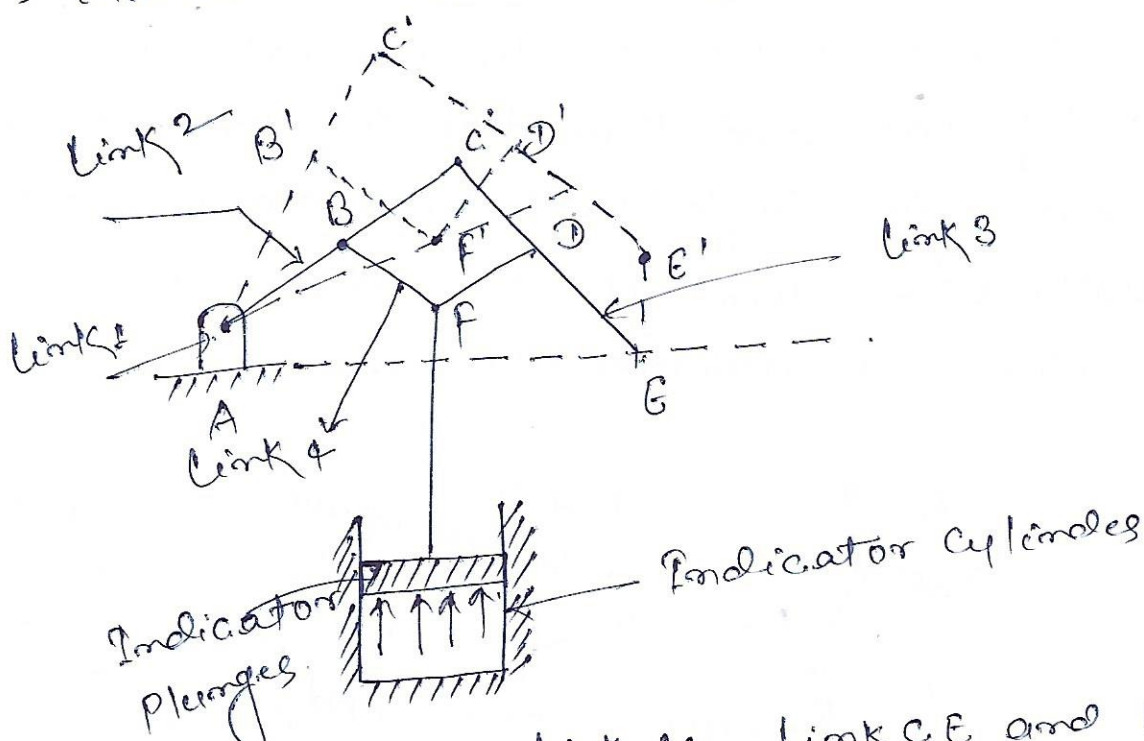 C'
Link 2
B'
C
D'
B
D
F'
E'
Link 3
Link 1
F
E
A
Link 4
Indicator Cylinder
Indicator
Plunger
Link CE and